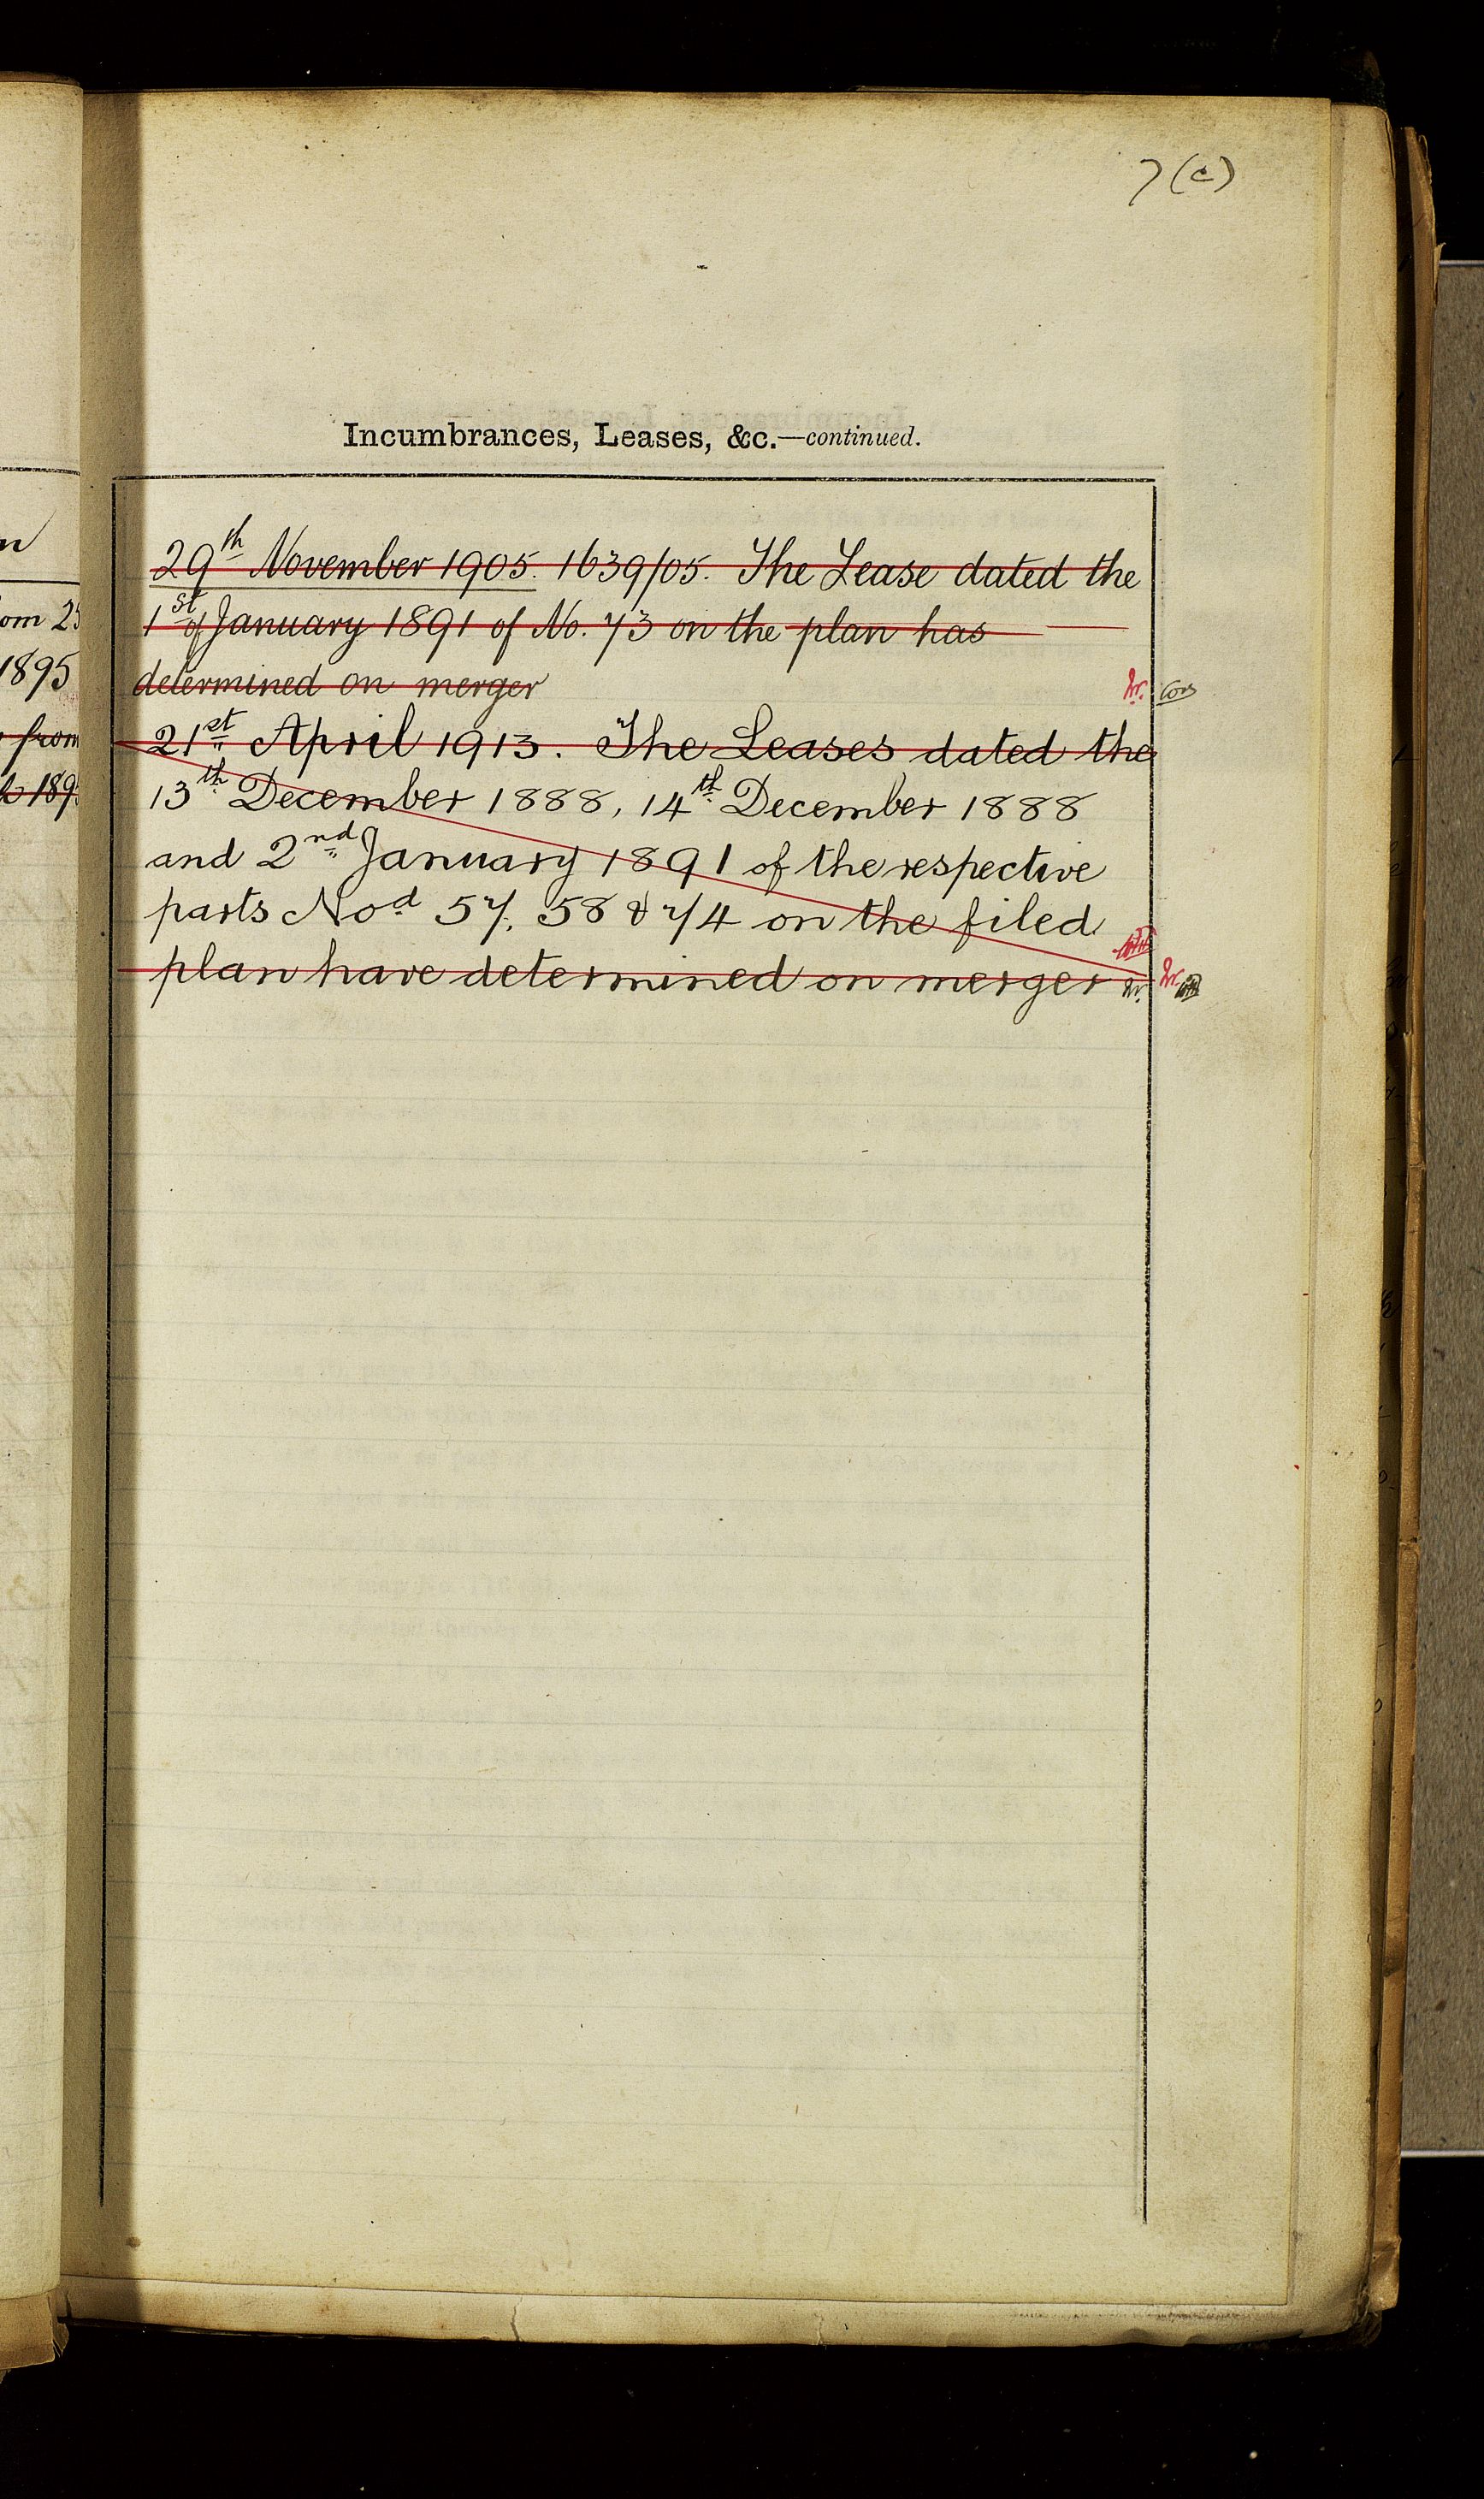 7(c)
Incumbrances, Leases, &c.—continued.
29th November 1905. 1639/05. The Lease dated the
1st of January 1891 of No. 73 on the plan has
determined on merger
21st April 1913. The Leases dated the
13th December 1888, 14th December 1888
and 2nd January 1891 of the respective
parts Nod 57, 58 & 74 on the filed
plan have determined on merger
om 25
1895
from
189